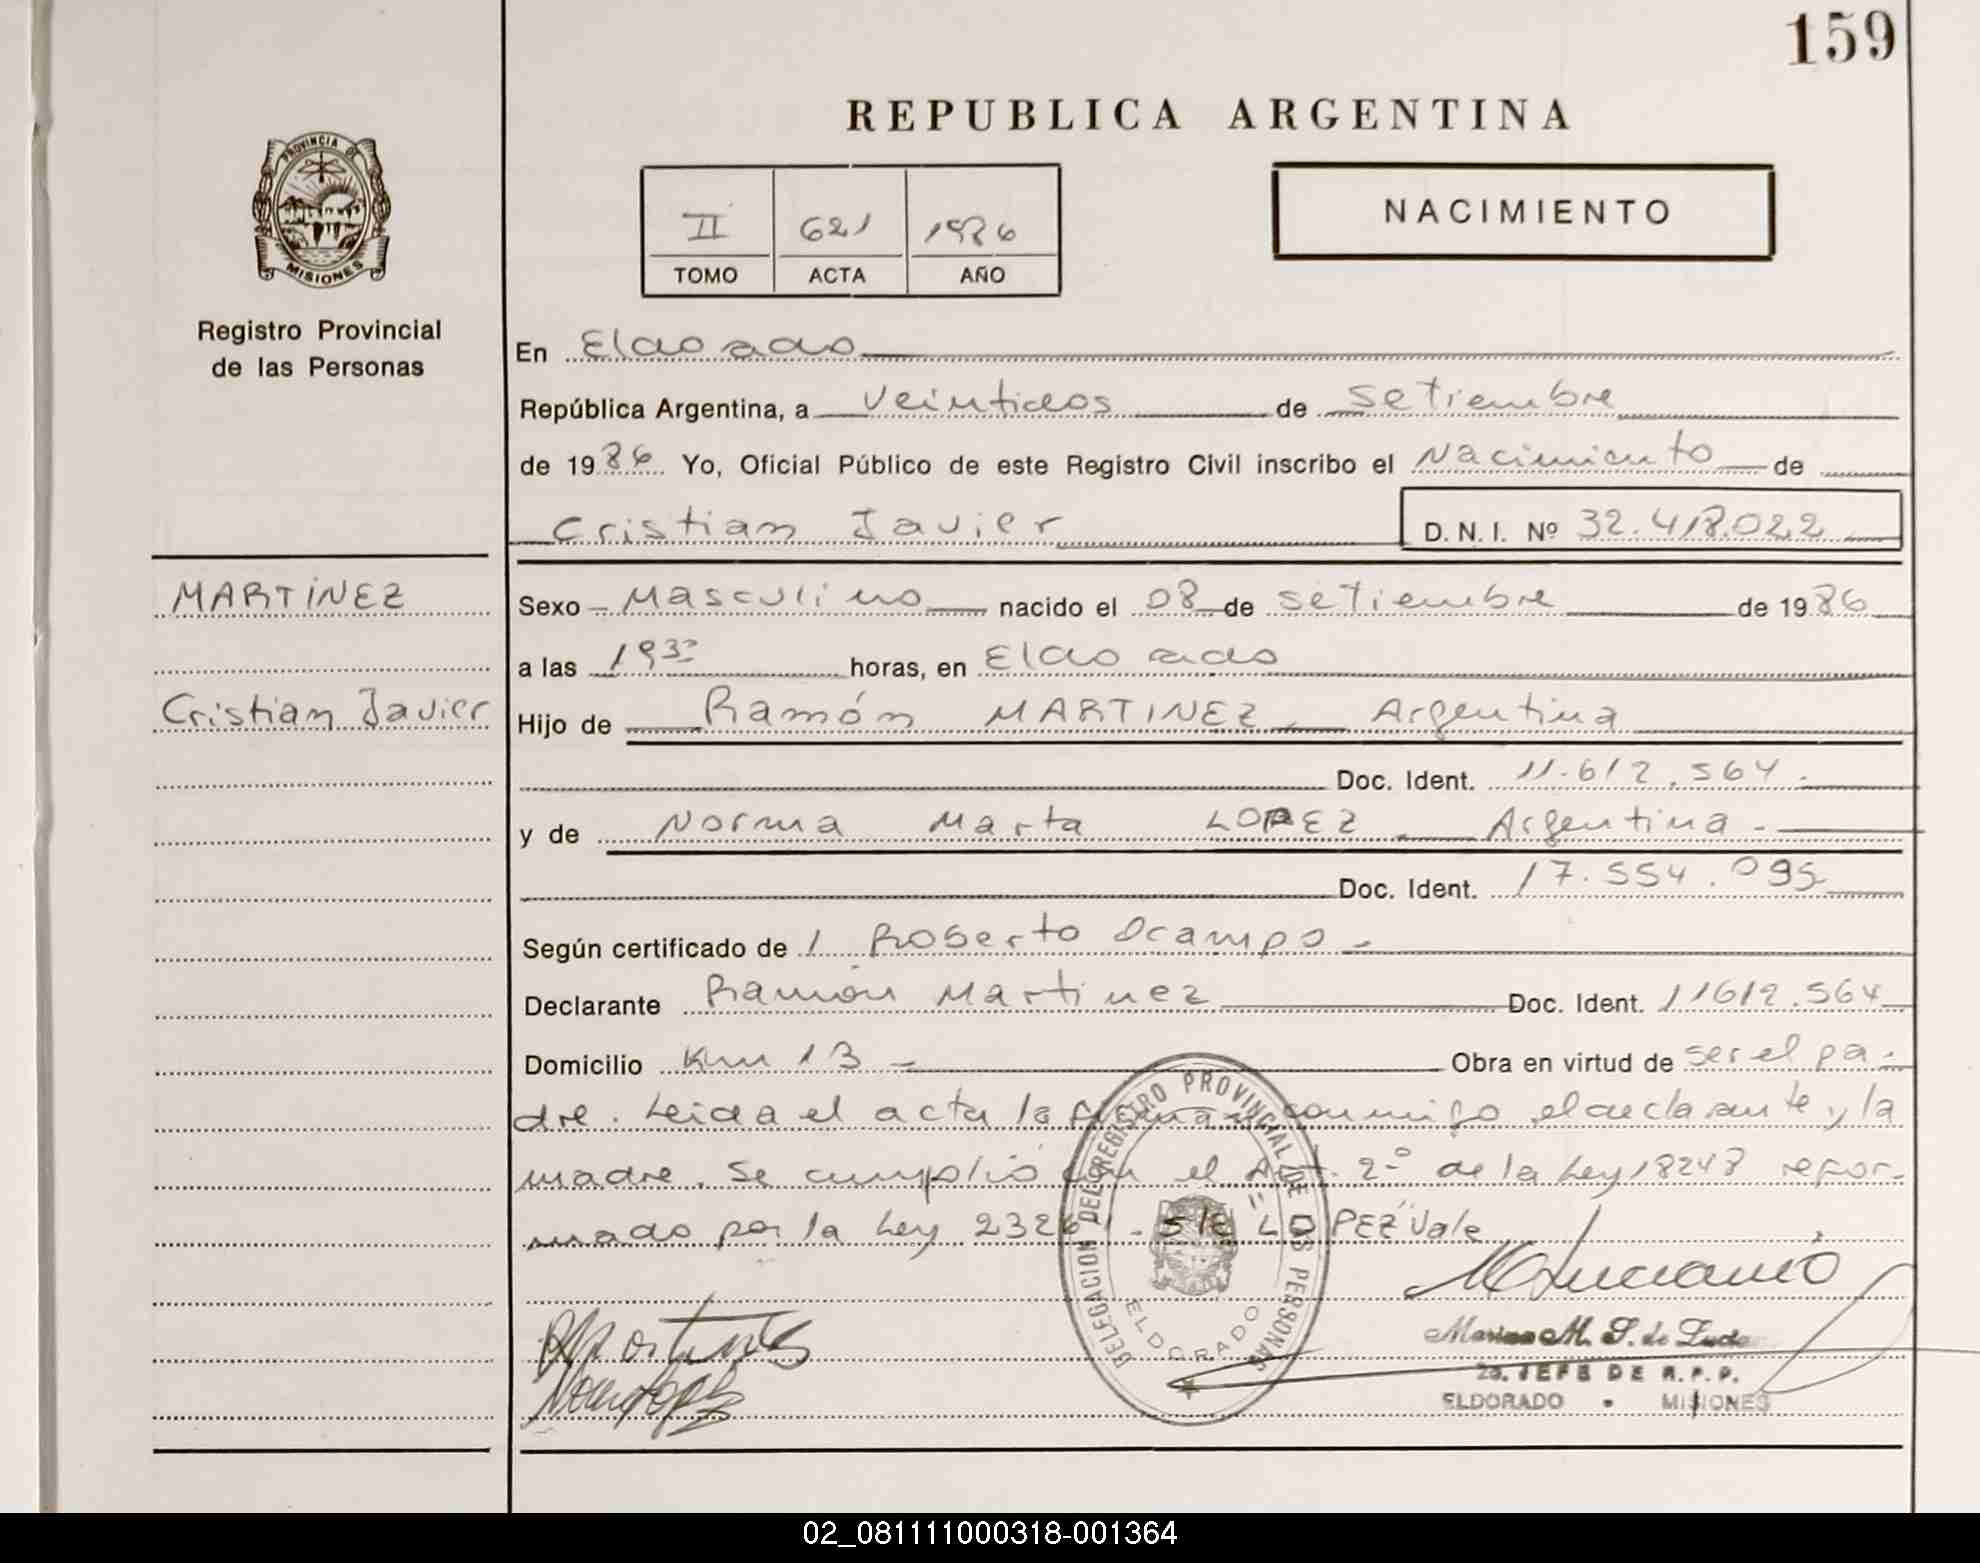 159
REPUBLICA ARGENTINA
PROVINCIA DE
MISIONES
Registro Provincial
de las Personas
II 621 1986
TOMO ACTA AÑO
NACIMIENTO
En Eldorado
República Argentina, a Veintidos de Setiembre
de 1986 Yo, Oficial Público de este Registro Civil inscribo el Nacimiento de
Cristian Javier D. N. I. Nº 32.418.022
MARTINEZ
Cristian Javier
Sexo Masculino nacido el 08 de Setiembre de 1986
a las 19 30 horas, en Eldorado
Hijo de Ramón MARTINEZ Argentina
Doc. Ident. 11.612.564.
y de Norma Marta LOPEZ Argentina.
Doc. Ident. 17.554.095
Según certificado de / Roberto Ocampo
Declarante Ramón Martinez Doc. Ident. 11612.564
Domicilio Km 13 Obra en virtud de ser el pa-
dre. Leida el acta la firman conmigo el declarante y la
madre. Se cumplió con el Art. 2º de la Ley 18248 refor-
mado por la Ley 23264. S/E "LOPEZ" Vale
DELEGACION DEL REGISTRO PROVINCIAL DE LAS PERSONAS
ELDORADO
2a. JEFE DE R.P.P.
ELDORADO • MISIONES
02_081111000318-001364